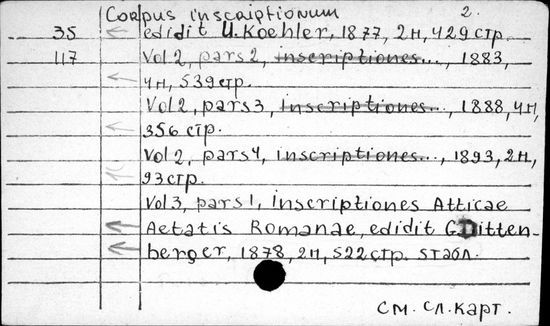 Corpus inscriptionum 2.
35 edidit U. Koehler, 1877, 2н, 429 стр.
117 Vol 2, pars 2, inscriptiones..., 1883,
4н, 539 стр.
Vol 2, pars 3, inscriptiones..., 1888, 4н,
356 стр.
Vol 2, pars 4, inscriptiones..., 1893, 2н,
93 стр.
Vol 3, pars 1, inscriptiones Atticae
Aetatis Romanae, edidit G. Ditten-
berger, 1878, 2н, 522 стр. 5 табл.
см. сл. карт.